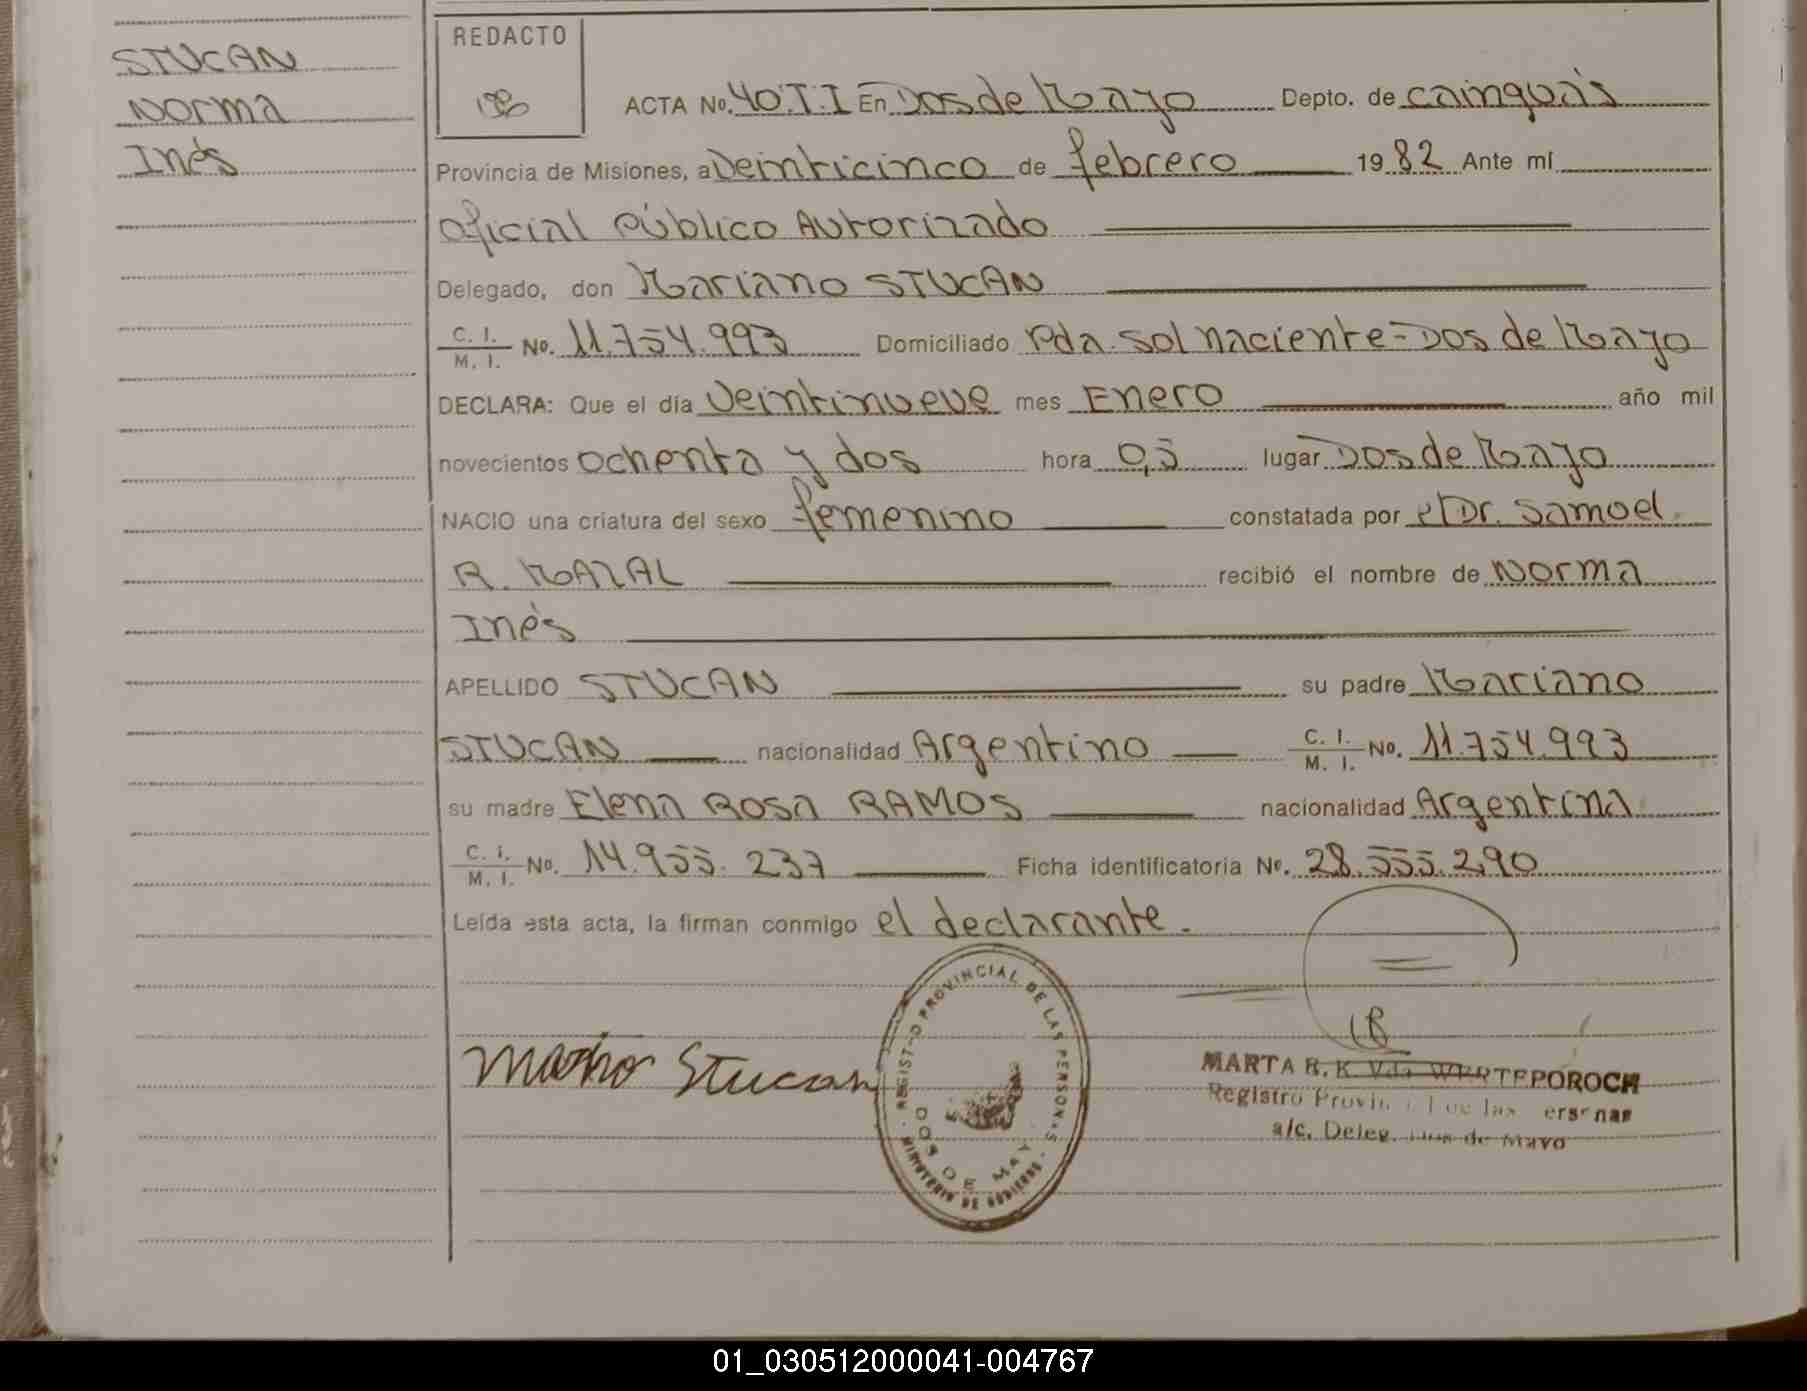 STUCAN
Norma
Inés
REDACTO
ACTA No. 40.T.I En Dos de Mayo Depto. de Cainguás
Provincia de Misiones, a Veinticinco de febrero 19 82 Ante mí
Oficial Público Autorizado
Delegado, don Mariano STUCAN
C. I. / M. I. No. 11.754.993 Domiciliado Pda. Sol naciente - Dos de Mayo
DECLARA: Que el día Veintinueve mes Enero año mil
novecientos ochenta y dos hora 0,5 lugar Dos de Mayo
NACIO una criatura del sexo femenino constatada por el Dr. Samoel
R. MAZAL recibió el nombre de Norma
Inés
APELLIDO STUCAN su padre Mariano
STUCAN nacionalidad Argentino C. I. / M. I. No. 11.754.993
su madre Elena Rosa RAMOS nacionalidad Argentina
C. I. / M. I. No. 14.955.237 Ficha identificatoria Nº. 28.555.290
Leída esta acta, la firman conmigo el declarante.
REGISTRO PROVINCIAL DE LAS PERSONAS
DOS DE MAYO
MINISTERIO DE GOBIERNO
Stucan
MARTA R. K. Vda WERTEPOROCH
Registro Provincial de las Personas
a/c. Deleg. Dos de Mayo
01_030512000041-004767